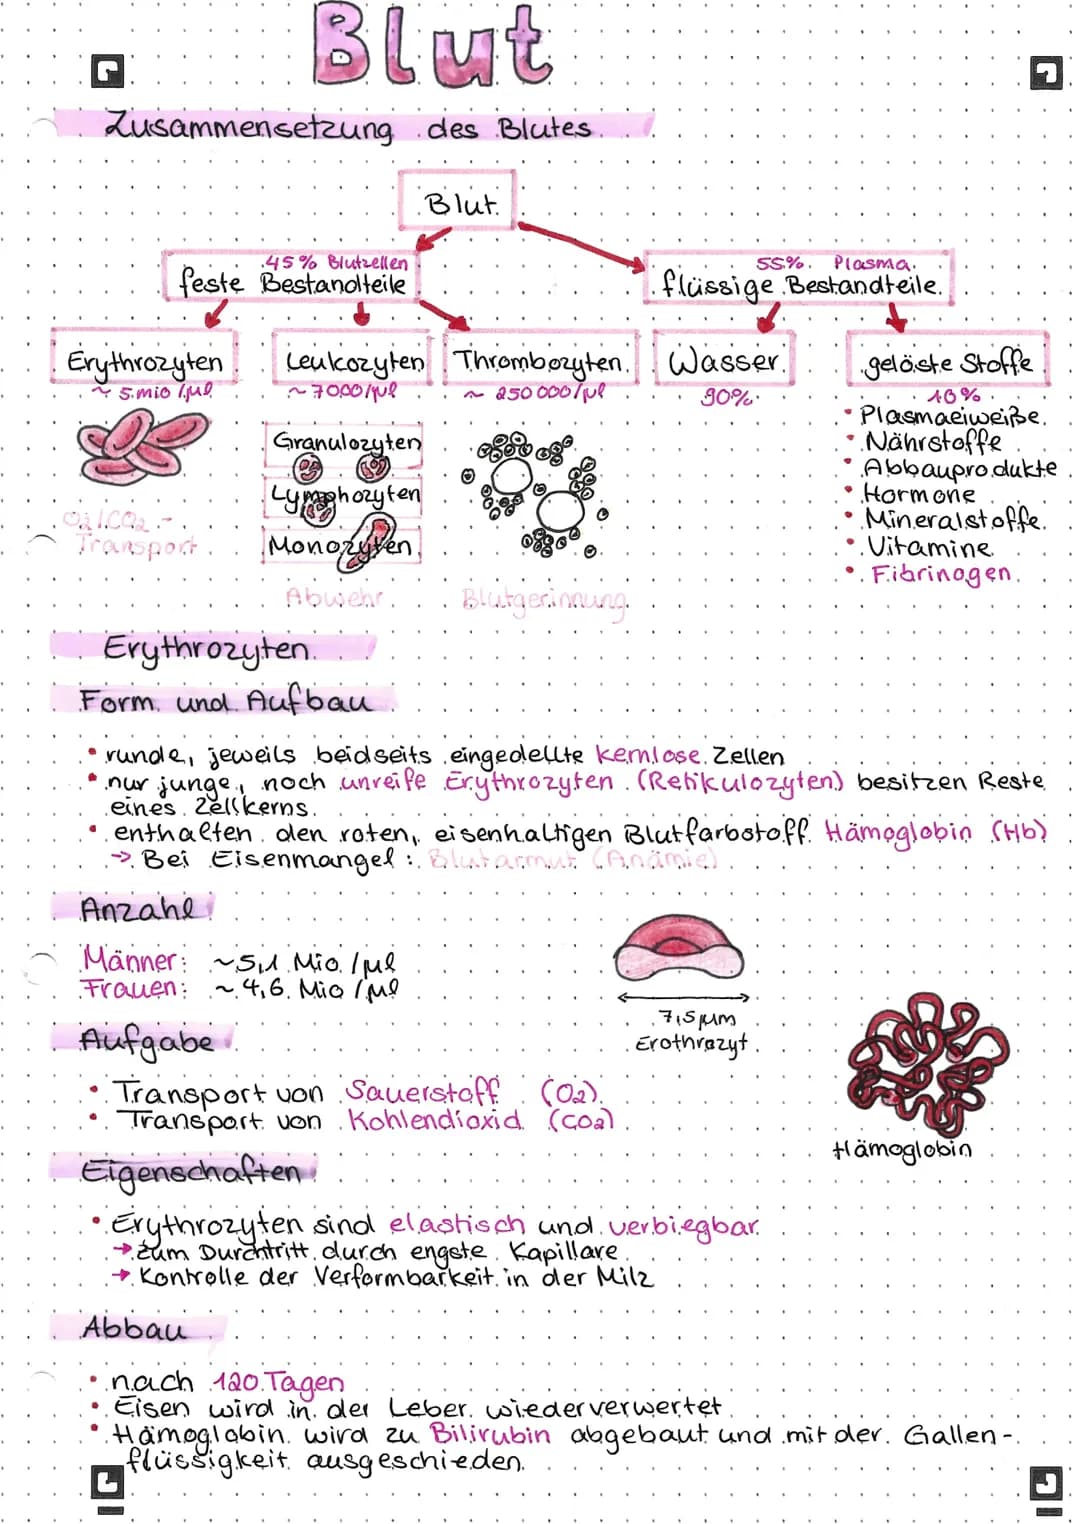 Blut
Zusammensetzung des Blutes
Blut
45% Blutzellen
feste Bestandteile
55% Plasma
flüssige Bestandteile
Erythrozyten
~ 5 mio /µl
Leukozyten
~ 7000/µl
Thrombozyten
~ 250 000/µl
Wasser
90%
gelöste Stoffe
10%
• Plasmaeiweiße
• Nährstoffe
• Abbauprodukte
• Hormone
• Mineralstoffe
• Vitamine
• Fibrinogen
O2/CO2 -
Transport
Granulozyten
Lymphozyten
Monozyten
Abwehr
Blutgerinnung
Erythrozyten
Form und Aufbau
• runde, jeweils beidseits eingedellte kernlose Zellen
• nur junge, noch unreife Erythrozyten (Retikulozyten) besitzen Reste
eines Zellkerns
• enthalten den roten, eisenhaltigen Blutfarbstoff Hämoglobin (Hb)
→ Bei Eisenmangel: Blutarmut (Anämie)
Anzahl
Männer: ~5,1 Mio /µl
Frauen: ~4,6 Mio /µl
7,5 µm
Erothrozyt
Aufgabe
• Transport von Sauerstoff (O2)
• Transport von Kohlendioxid (CO2)
Hämoglobin
Eigenschaften
• Erythrozyten sind elastisch und verbiegbar
→ zum Durchtritt durch engste Kapillare
→ Kontrolle der Verformbarkeit in der Milz
Abbau
• nach 120 Tagen
• Eisen wird in der Leber wiederverwertet
• Hämoglobin wird zu Bilirubin abgebaut und mit der Gallen-
flüssigkeit ausgeschieden